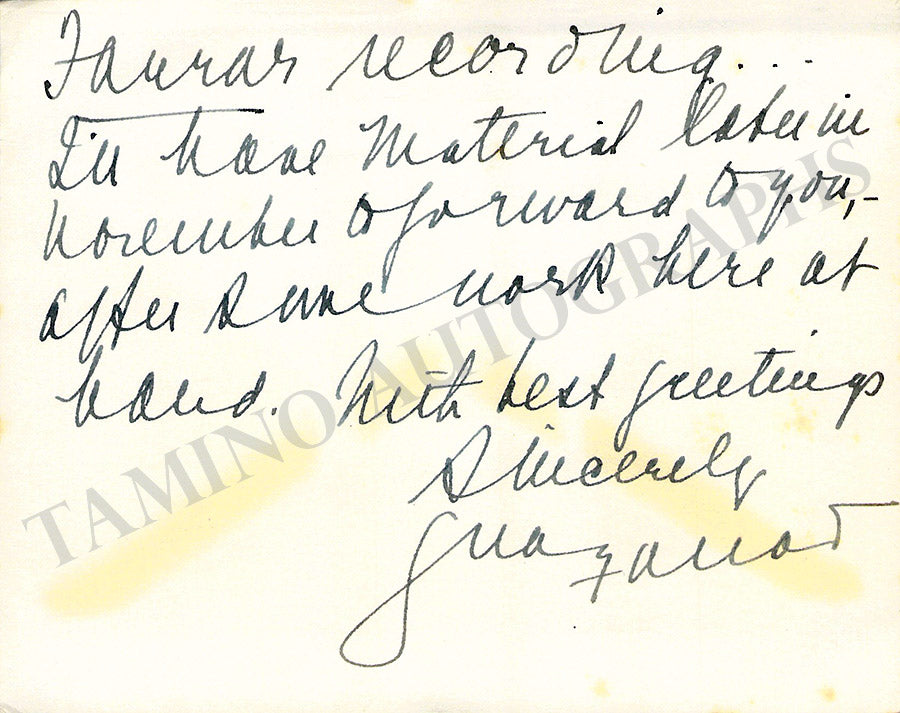 Farrar recording...
I'll have material later in
November to forward to you,-
after some work here at
hand. With best greetings
Sincerely
Farrar
TAMINO AUTOGRAPHS